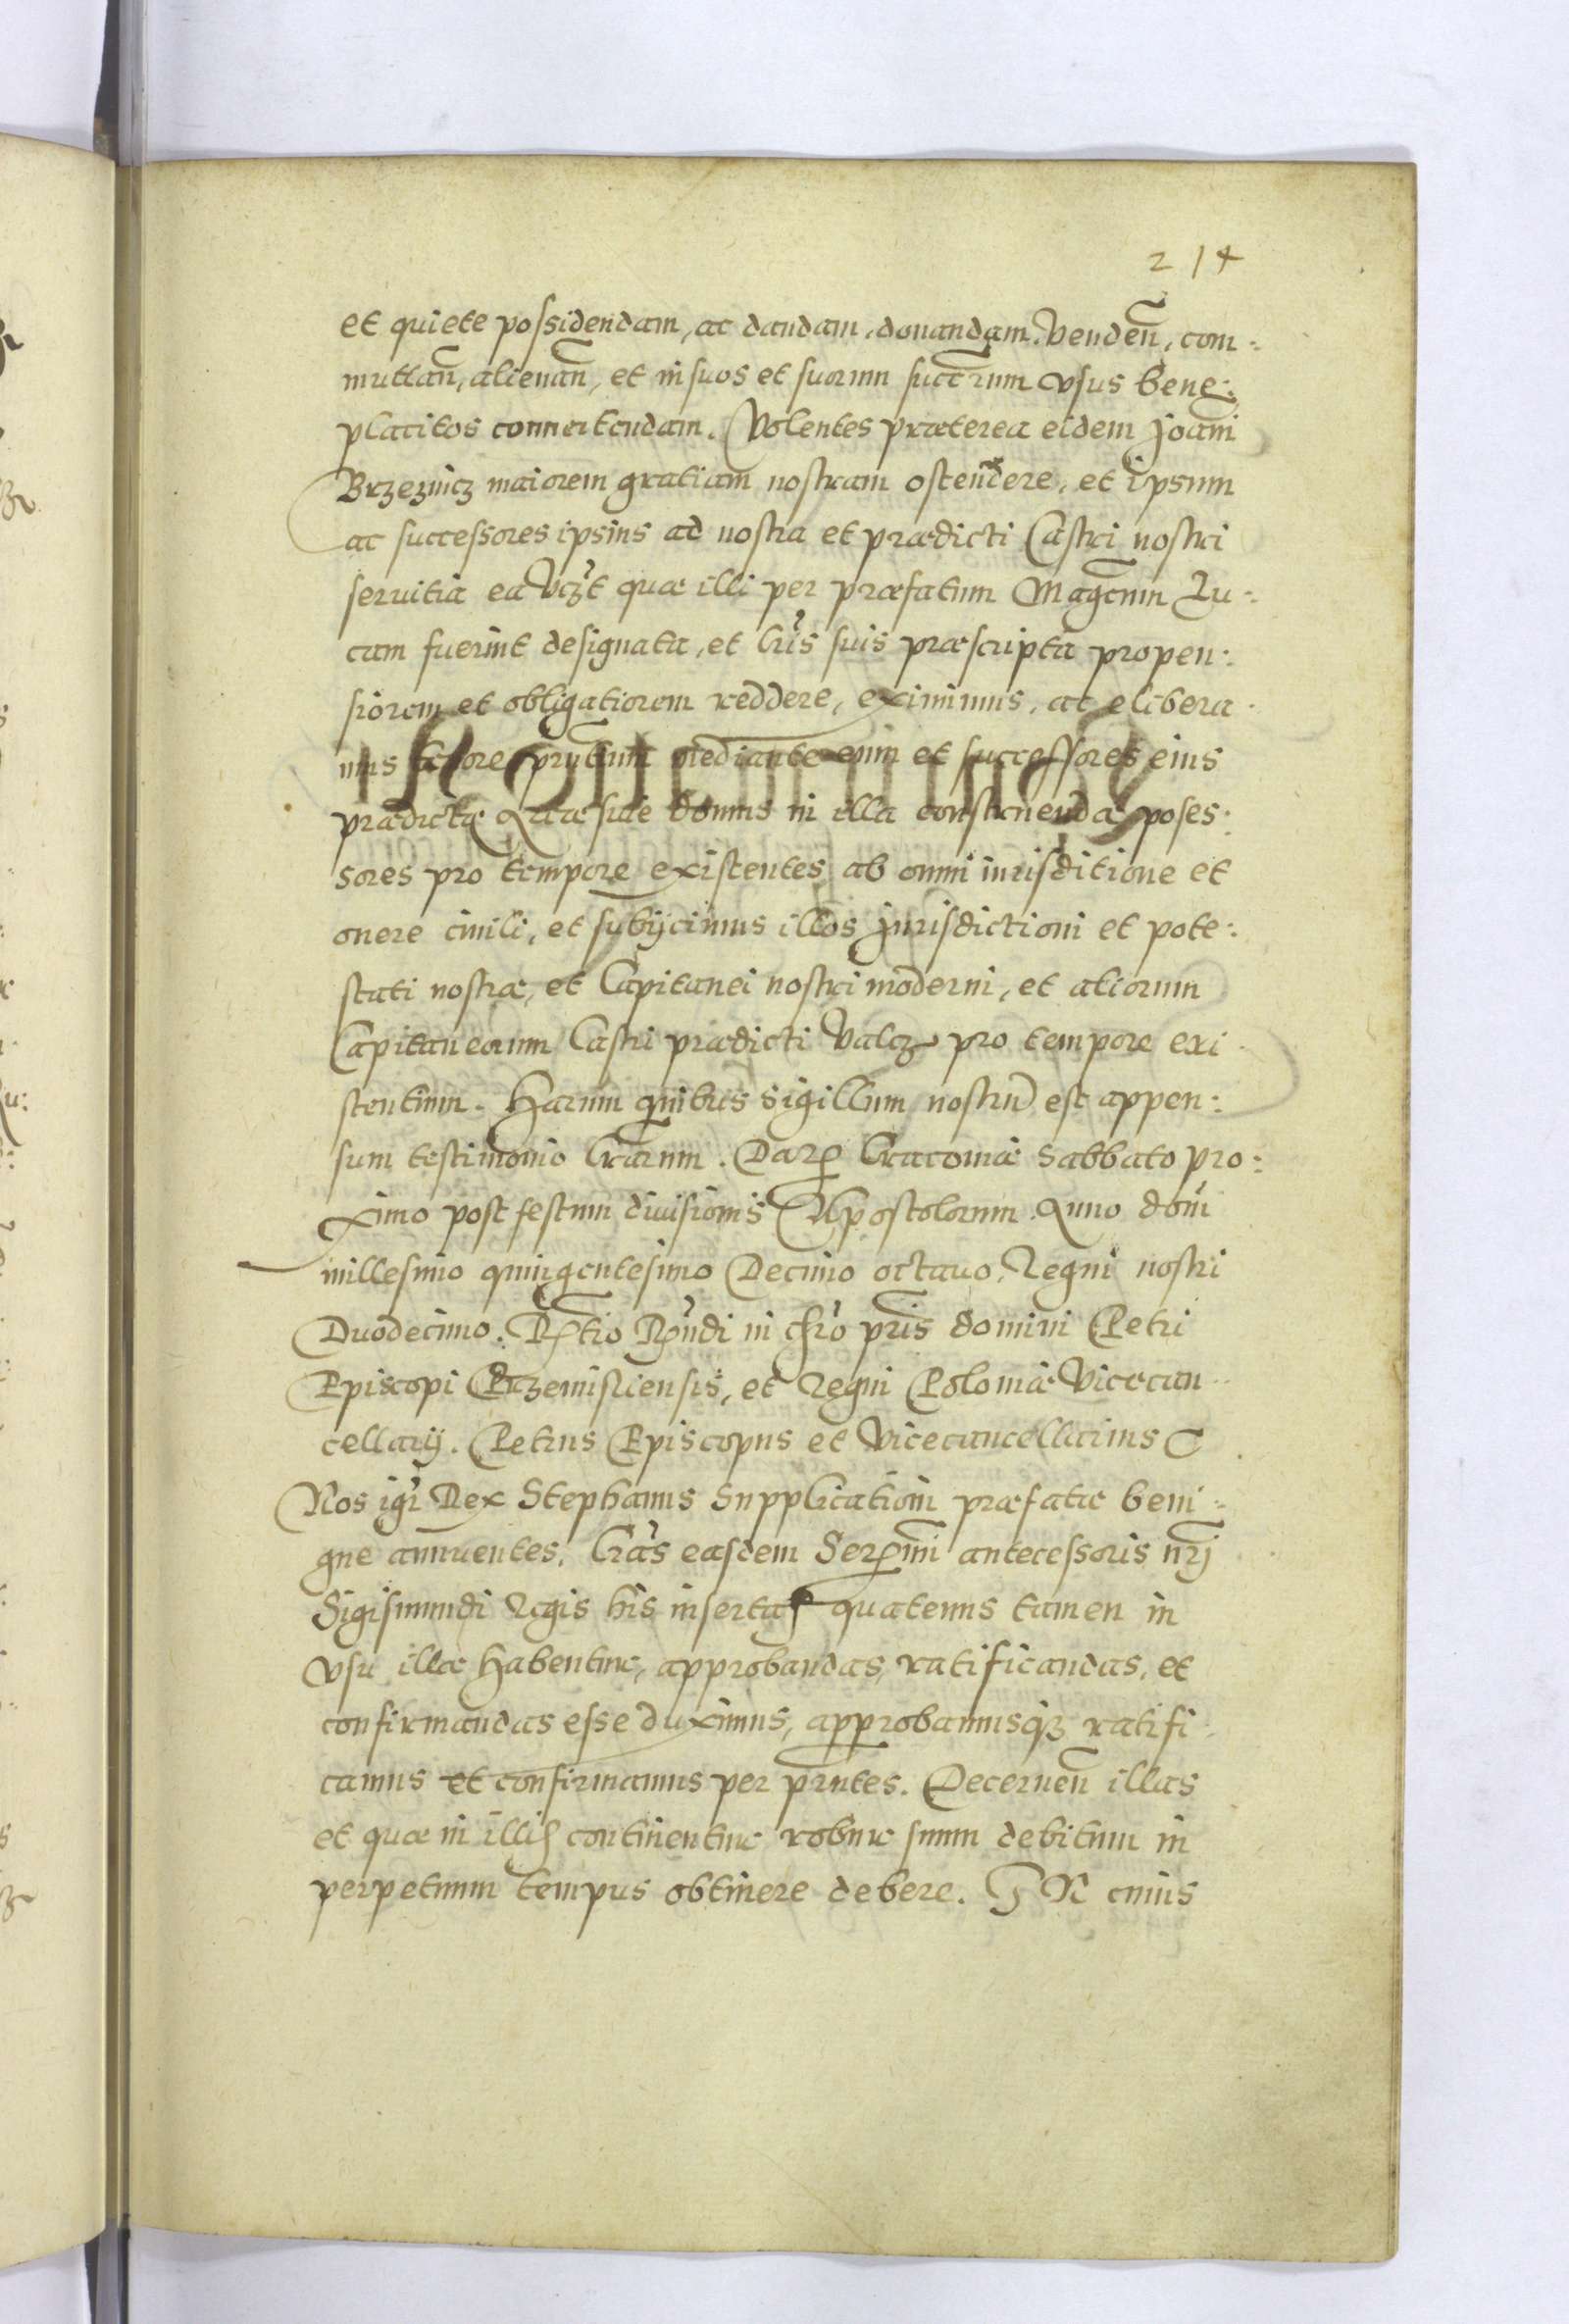 214
et quiete possidendam, ac dandam, donandam. Venden̄, com:
muttan̄, alienan̄, et in suos et suorum succ̄rum vsus bene:
placitos conuertendam. Volentes præterea eidem Joan̄i
Brzezinicz maiorem gratiam nostram ostendere, et ipsum
ac successores ipsius ad nostra et prædicti Castri nostri
seruitia ea vicz̄t quæ illi per præfatum Mag̅cum Lu:
cam fuerint designata, et l̄ris suis præscripta propen:
siorem et obligatiorem reddere, eximimus, ac elibera
mus tenore pr̄ntium mediante eum et successores eius
prædictæ Areæ siue domus in illa construendæ poses:
sores pro tempore existentes ab omni iurisditione et
onere ciuili, et subijcimus illos Jurisdictioni et pote:
stati nostræ, et Capitanei nostri moderni, et aliorum
Capitaneorum Castri prædicti Valcz pro tempore exi
stentium. Harum quibus sigillum nostrū est appen:
sum testimonio l̄rarum. Dat̄ Cracouiæ Sabbato pro:
ximo post festum diuisionis Apostolorum Anno dōni
millesimo quingentesimo Decimo octauo, Regni nostri
Duodecimo. R̄tio R̄ndi in chr̄o pr̄is domini Petri
Episcopi Przemisliensis, et Regni Poloniæ Vicecan
cellarij. Petrus Episcopus et Vicecancellarius
Nos igr̄ Rex Stephanus Supplicationi præfatæ beni:
gne annuentes, l̄ras easdem Ser̄mi antecessoris nr̄j
Sigismundi Regis his insertas quatenus tamen in
vsu illæ habentur, approbandas, ratificandas, et
confirmandas esse duximus, approbamusq̃ ratifi
camus et confirmamus per pr̄ntes. Decernen̄ illas
et quæ in illis continentur robur suum debitum in
perpetuum tempus obtinere debere. IN cuius